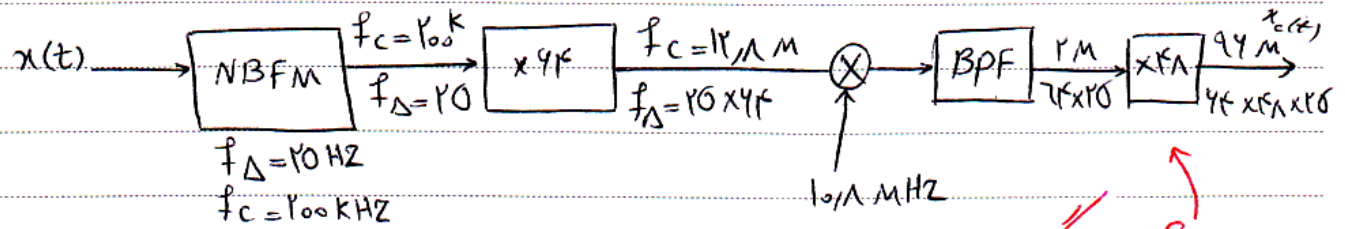 x(t) NBFM f_c=۲۰۰k f_Δ=۲۵ ×۶۴ f_c=۱۲٫۸ M f_Δ=۲۵×۶۴ ⊗ BPF ۲M ۶۴×۲۵ ×۴۸ ۹۶ M x_c(t) ۶۴×۴۸×۲۵
f_Δ=۲۵ HZ
۱۰٫۸ MHZ
f_c=۲۰۰ KHZ